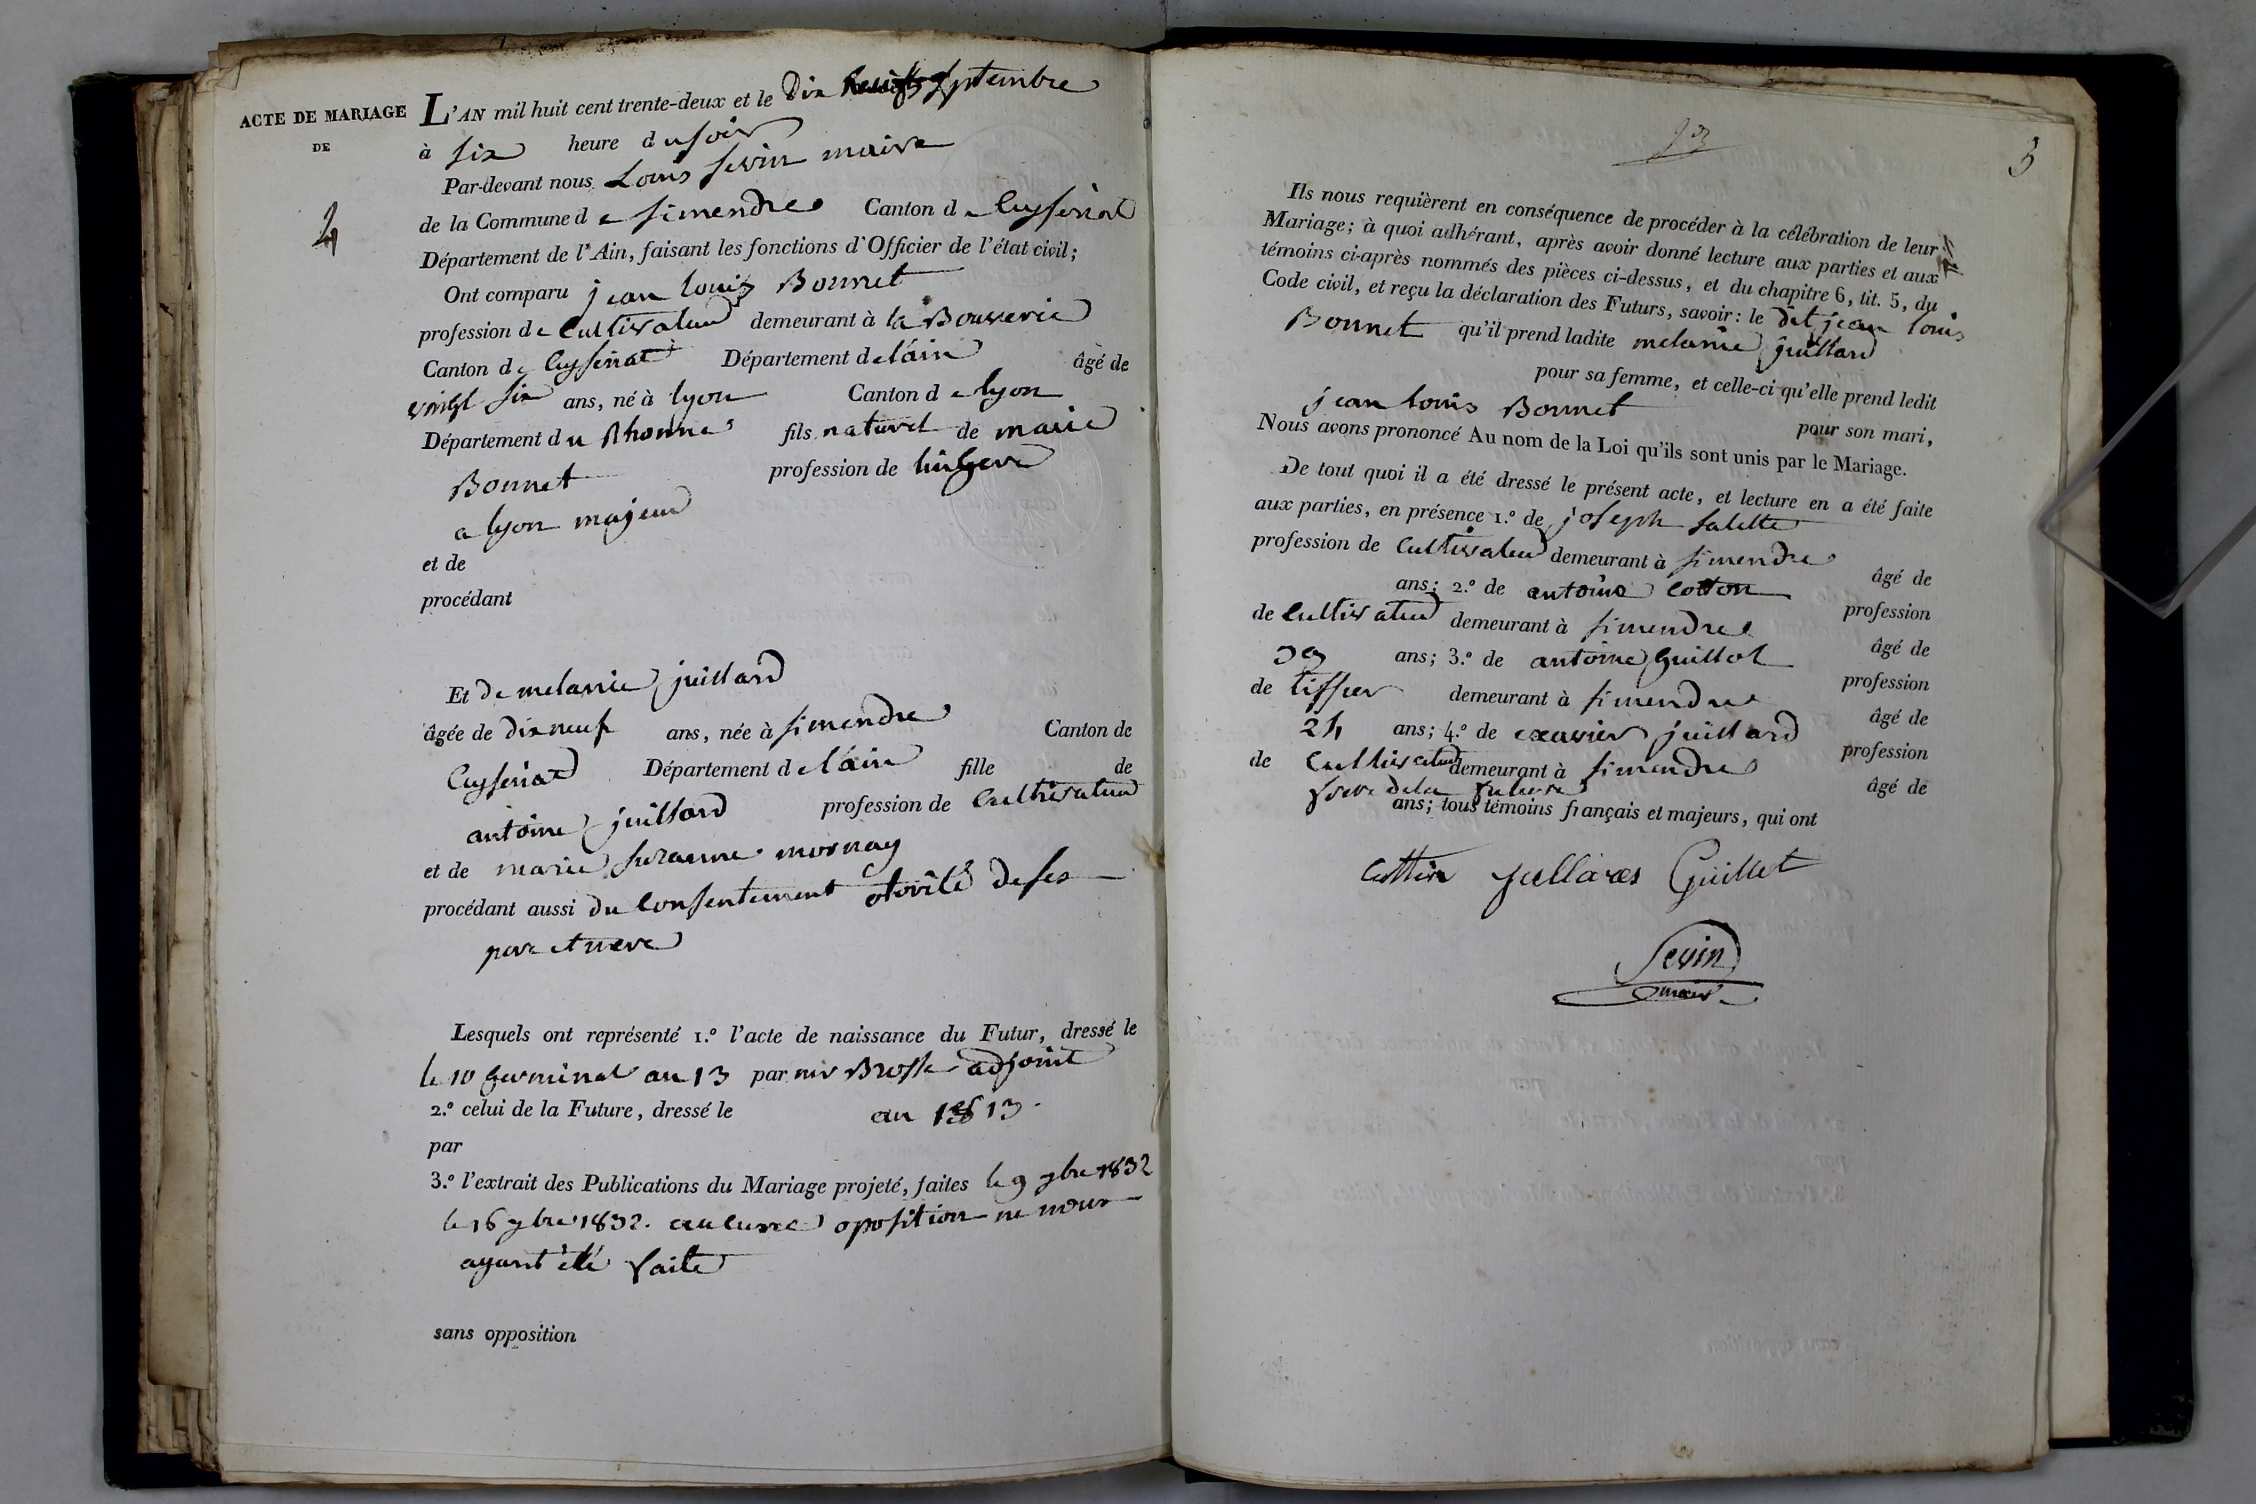 ACTE DE MARIAGE
DE
4
L'AN mil huit cent trente-deux et le Dix septembre
à six heure du soir
Par-devant nous Louis sevin maire
de la Commune de simendre Canton de Ceyseriat
Département de l'Ain, faisant les fonctions d'Officier de l'état civil;
Ont comparu jean louis Bonnet
profession de Cultivateur demeurant à la Bouverie
Canton de Ceyseriat Département de l'áin âgé de
vingt six ans, né à lyon Canton de lyon
Département du Rhonne fils naturel de marie
Bonnet profession de lingere
a lyon majeur
et de
procédant
Et De melanie juillard
âgée de dix neuf ans, née à simendre Canton de
Ceyseriat Département de l'áin fille de
antoine juillard profession de Cultivateur
et de marie suzanne mornay
procédant aussi du Consentement de ses
pere et mere
Lesquels ont représenté 1.º l'acte de naissance du Futur, dressé le
le 10 germinal an 13 par mr Brosse adjoint
2.º celui de la Future, dressé le an 1813
par
3.º l'extrait des Publications du Mariage projeté, faites le 9 7bre 1832
le 16 7bre 1832. aucune oposition ne nous
ayant été faite
sans opposition
3
Ils nous requièrent en conséquence de procéder à la célébration de leur
Mariage; à quoi adhérant, après avoir donné lecture aux parties et aux
témoins ci-après nommés des pièces ci-dessus, et du chapitre 6, tit. 5, du
Code civil, et reçu la déclaration des Futurs, savoir: le dit jean louis
Bonnet qu'il prend ladite melanie juillard
pour sa femme, et celle-ci qu'elle prend ledit
jean louis Bonnet pour son mari,
Nous avons prononcé Au nom de la Loi qu'ils sont unis par le Mariage.
De tout quoi il a été dressé le présent acte, et lecture en a été faite
aux parties, en présence 1.º de joseph salette
profession de Cultivateur demeurant à simendre âgé de
ans; 2.º de antoine Cotton profession
de Cultivateur demeurant à simendre âgé de
39 ans; 3.º de antoine guillot profession
de tissier demeurant à simendre âgé de
24 ans; 4.º de exavier juillard profession
de Cultivateur demeurant à simendre âgé de
frere de la future
ans; tous témoins français et majeurs, qui ont
Cottin Guillet
Sevin
maire